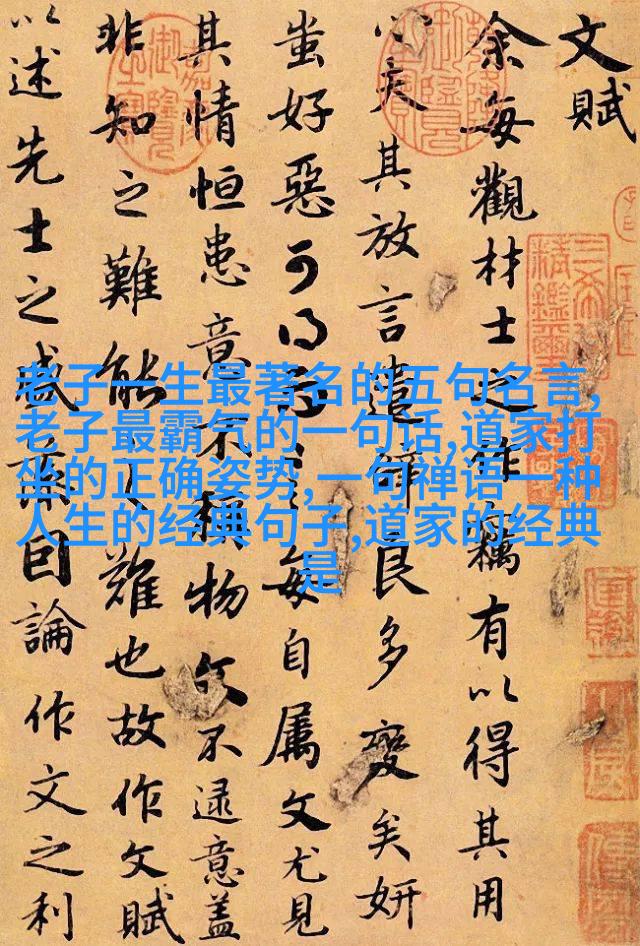 文賦
余每觀材士之作竊有以得其用
心夫其放言遣辭良多變矣妍
蚩好惡可得而言每自属文尤見
其情恒患意不稱物文不逮意盖
非知之難能之難也故作文賦
以述先士之盛藻因論作文之利
老子一生最著名的五句名言,
老子最霸气的一句话,道家打
坐的正确姿势,一句禅语一种
人生的经典句子,道家的经典
是